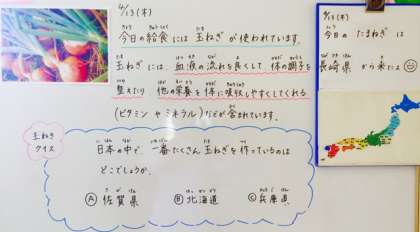 4/13(木)
今日の給食には玉ねぎが使われています。
玉ねぎには、血液の流れを良くして体の調子を
整えたり、他の栄養を体に吸収しやすくしてくれる
(ビタミンやミネラル)などが含まれています。
玉ねぎ
クイズ
日本の中で、一番たくさん玉ねぎを作っているのは
どこでしょうか。
Ⓐ佐賀県 Ⓑ北海道 Ⓒ兵庫県
4/13(木)
今日の たまねぎ は
長崎県 から来たよ